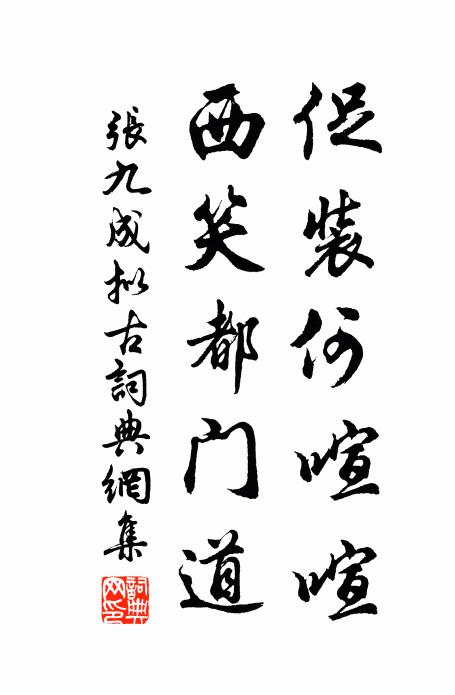 促裝何喧喧
西笑都门道
張九成拟古詞典網集
詞典网印